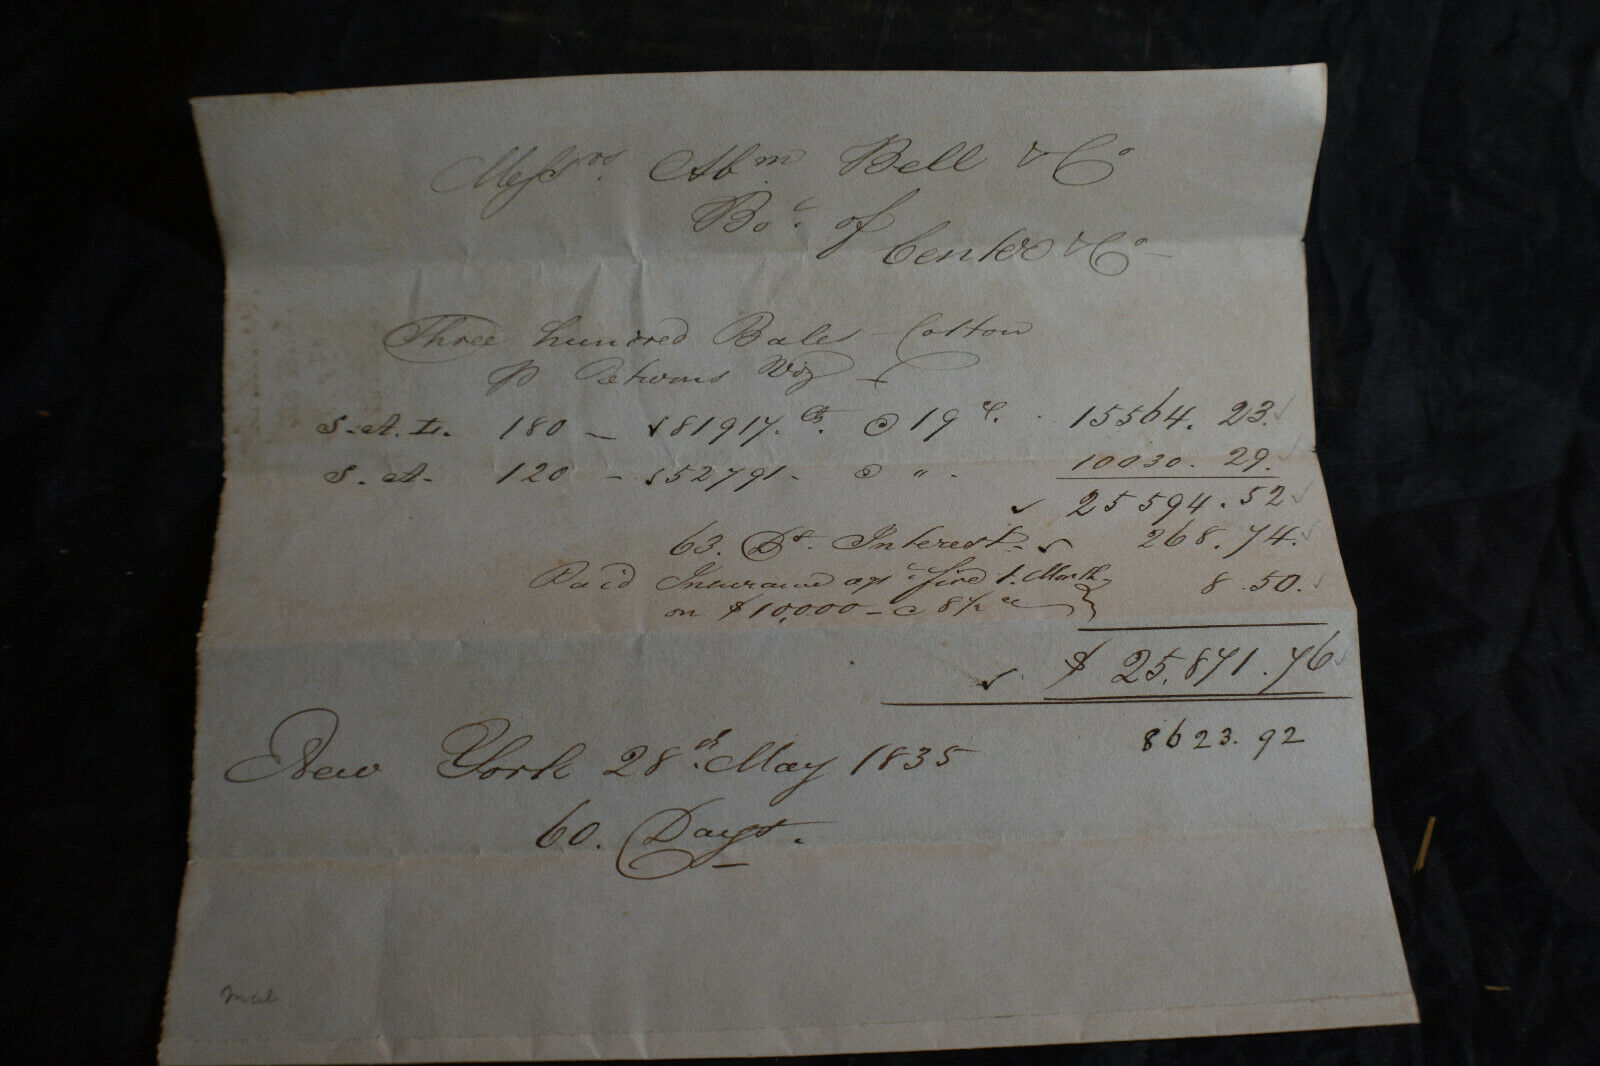 Messrs. Abm Bell & Co
Bot. of
& Co
Three hundred Bales Cotton
P Returns Viz
S.A.L. 180 — 81917. lb. @ 19 c. 15564. 23.
S.A. 120 — 52791. @ " . 10030. 29.
25594. 52
63. Ds. Interest. 268. 74.
Paid Insurance agt fire 1. Month
on $10,000 — @ 8½ c 8.50.
$ 25,871. 76
8623. 92
New York 28th. May 1835
60. Days.